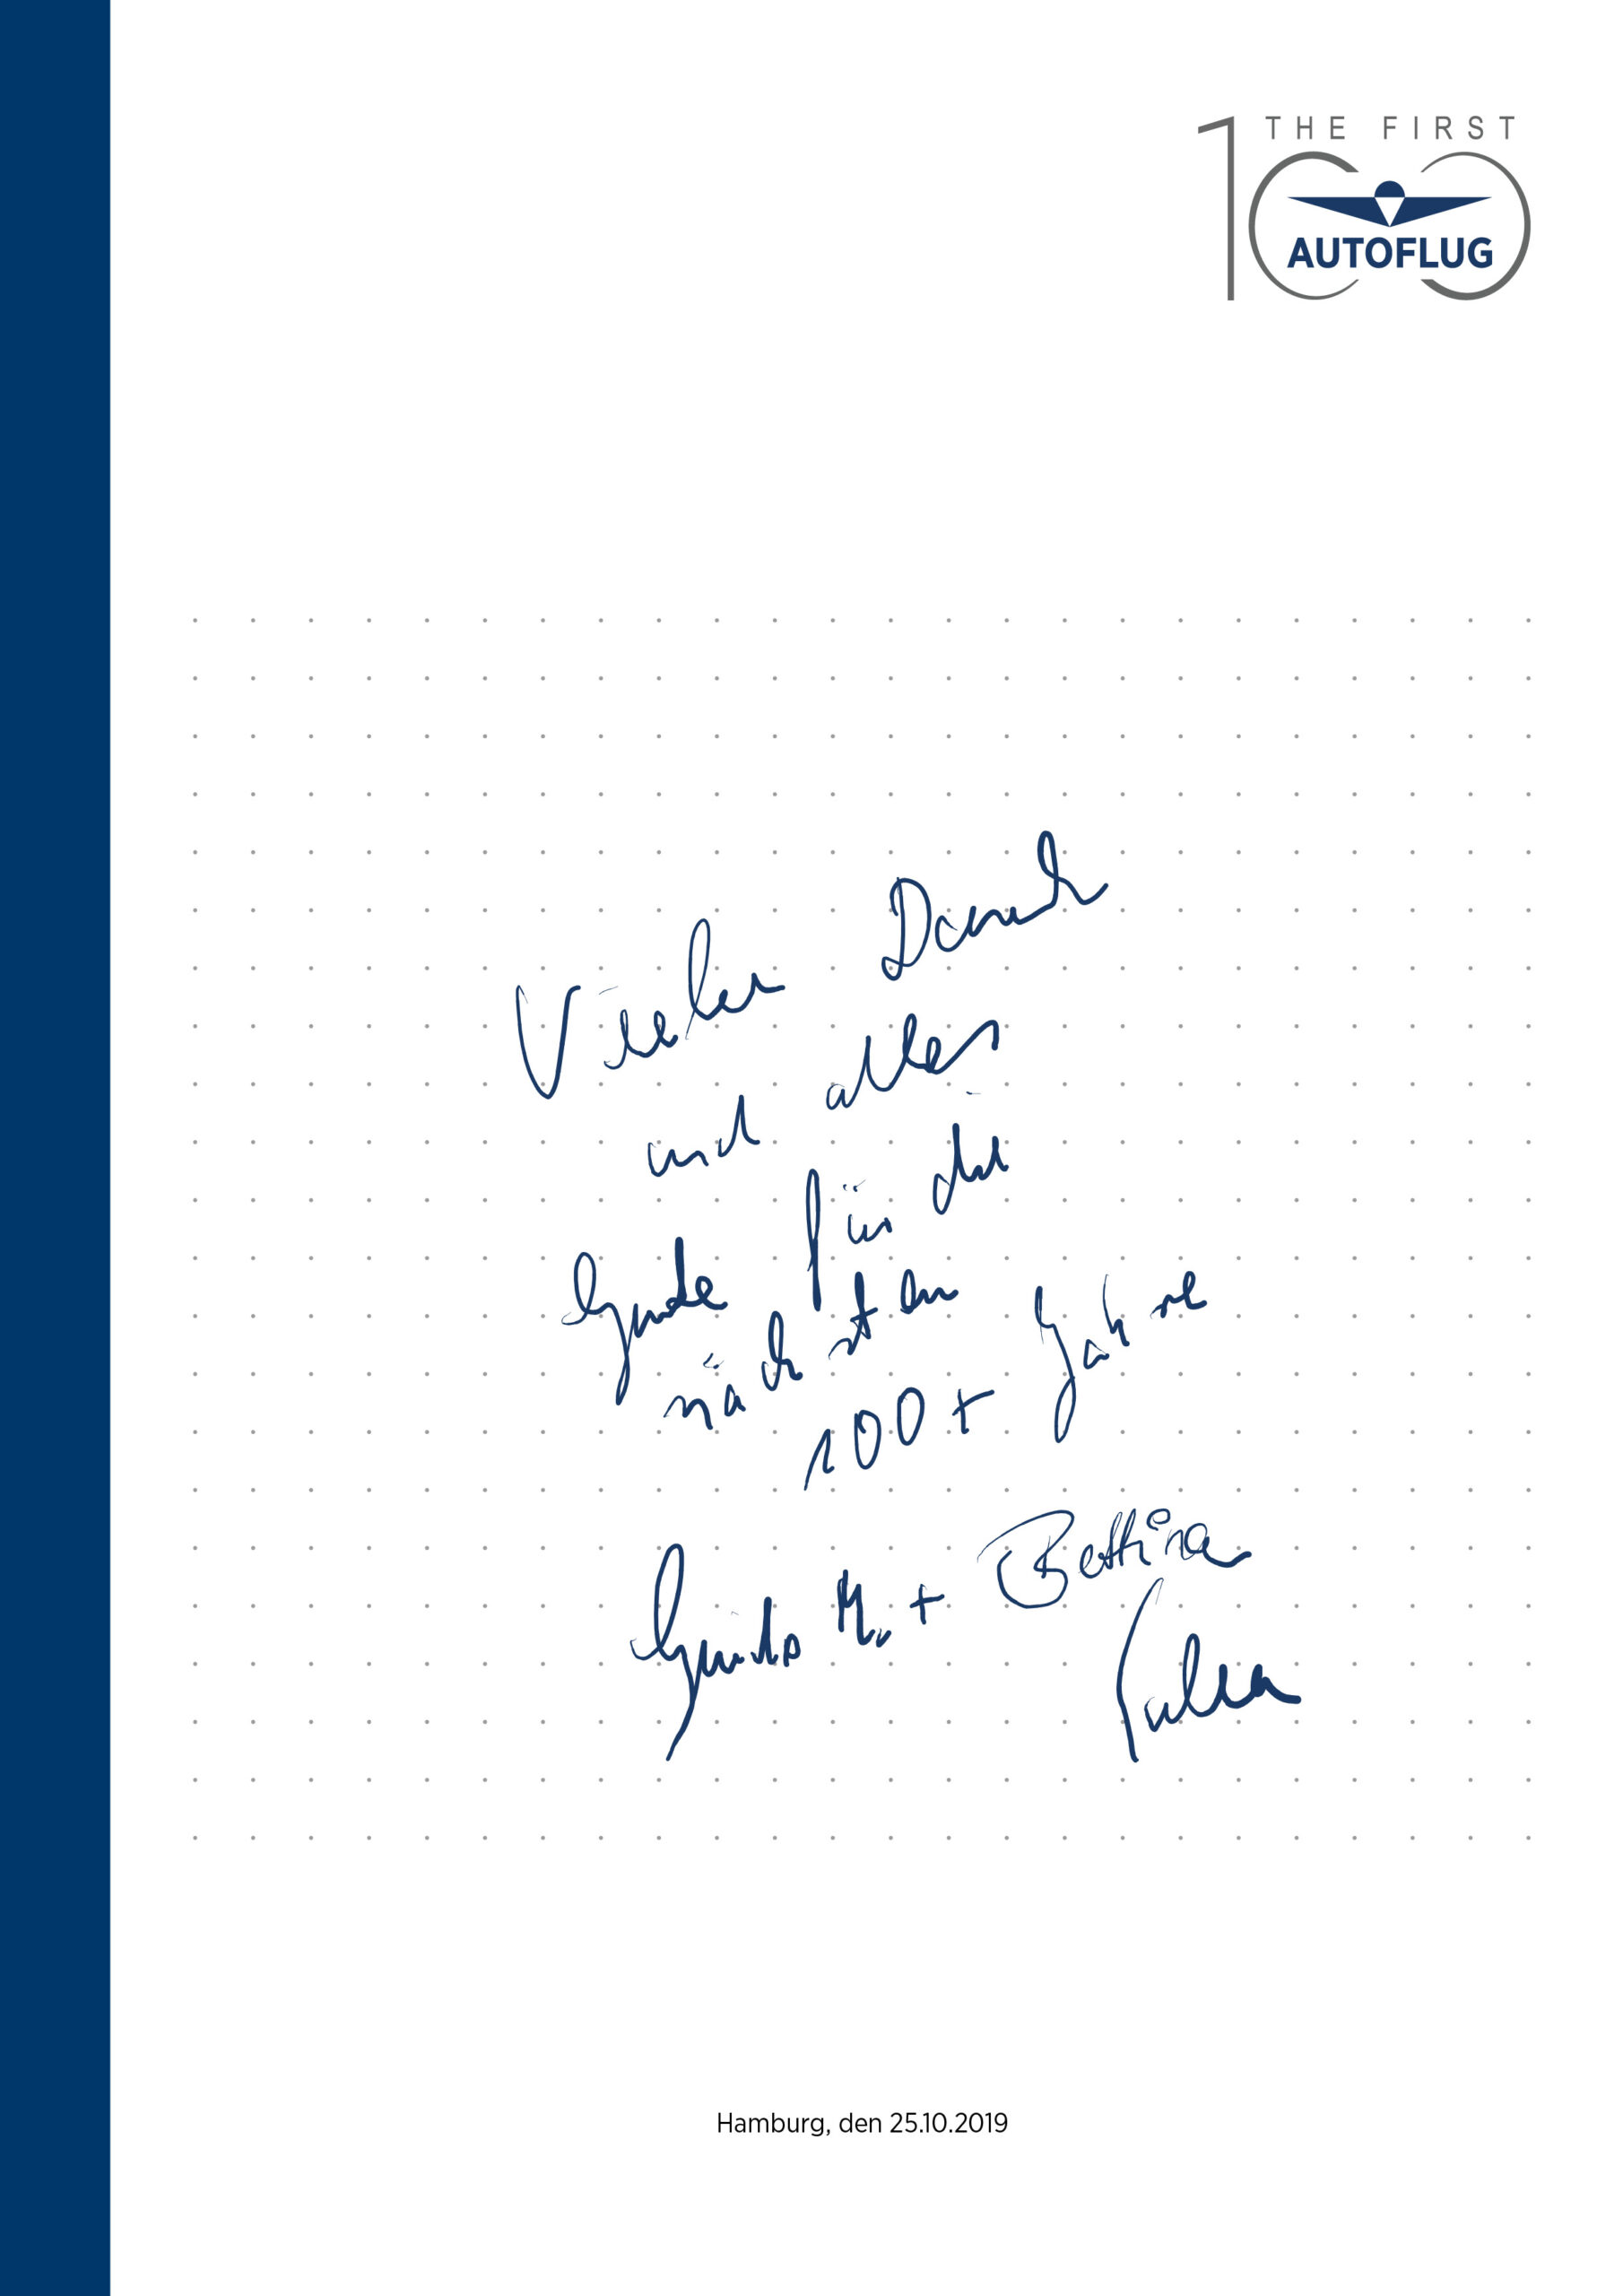 THE FIRST
100
AUTOFLUG
Vielen Dank
und alles
Gute für die
nächsten
100+ Jahre
Guido + Bettina
Hamburg, den 25.10.2019